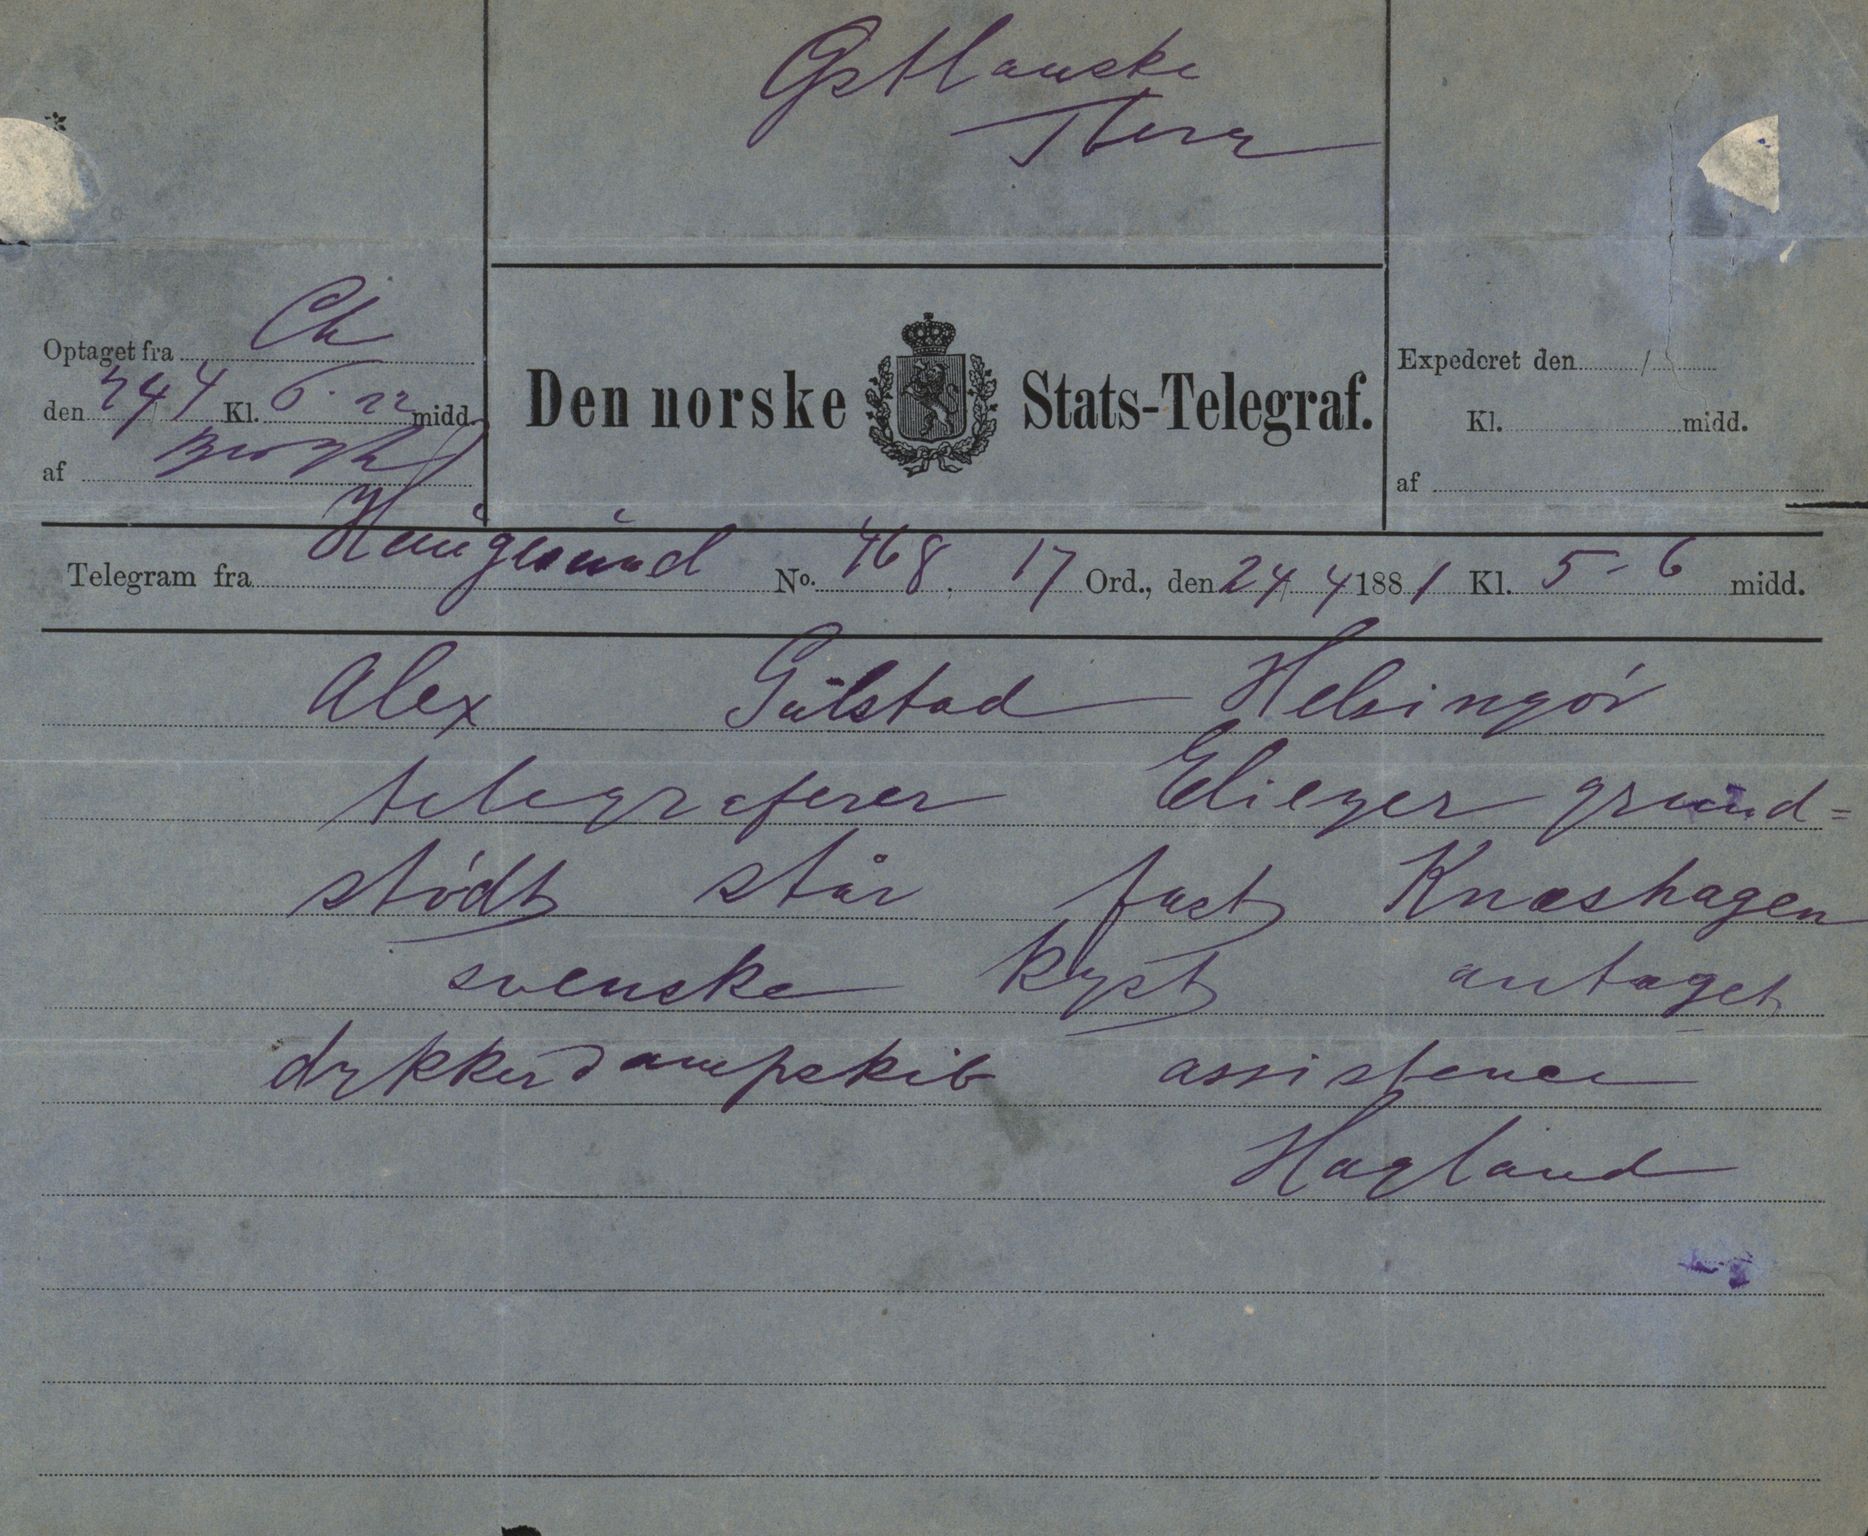 Optaget fra Ch
den 24/4 Kl. 6.22 midd.
af
Den norske Stats-Telegraf.
Expederet den / 
Kl. midd.
af
Telegram fra Haugesund No. 468, 17 Ord., den 24/4 1881 Kl. 5-6 midd.
Alex Gulstad Helsingør
telegraferer Eliezer grund=
stødt står fast Knæshagen
svenske kyst antaget
dykkerdampskib assistence
Hagland